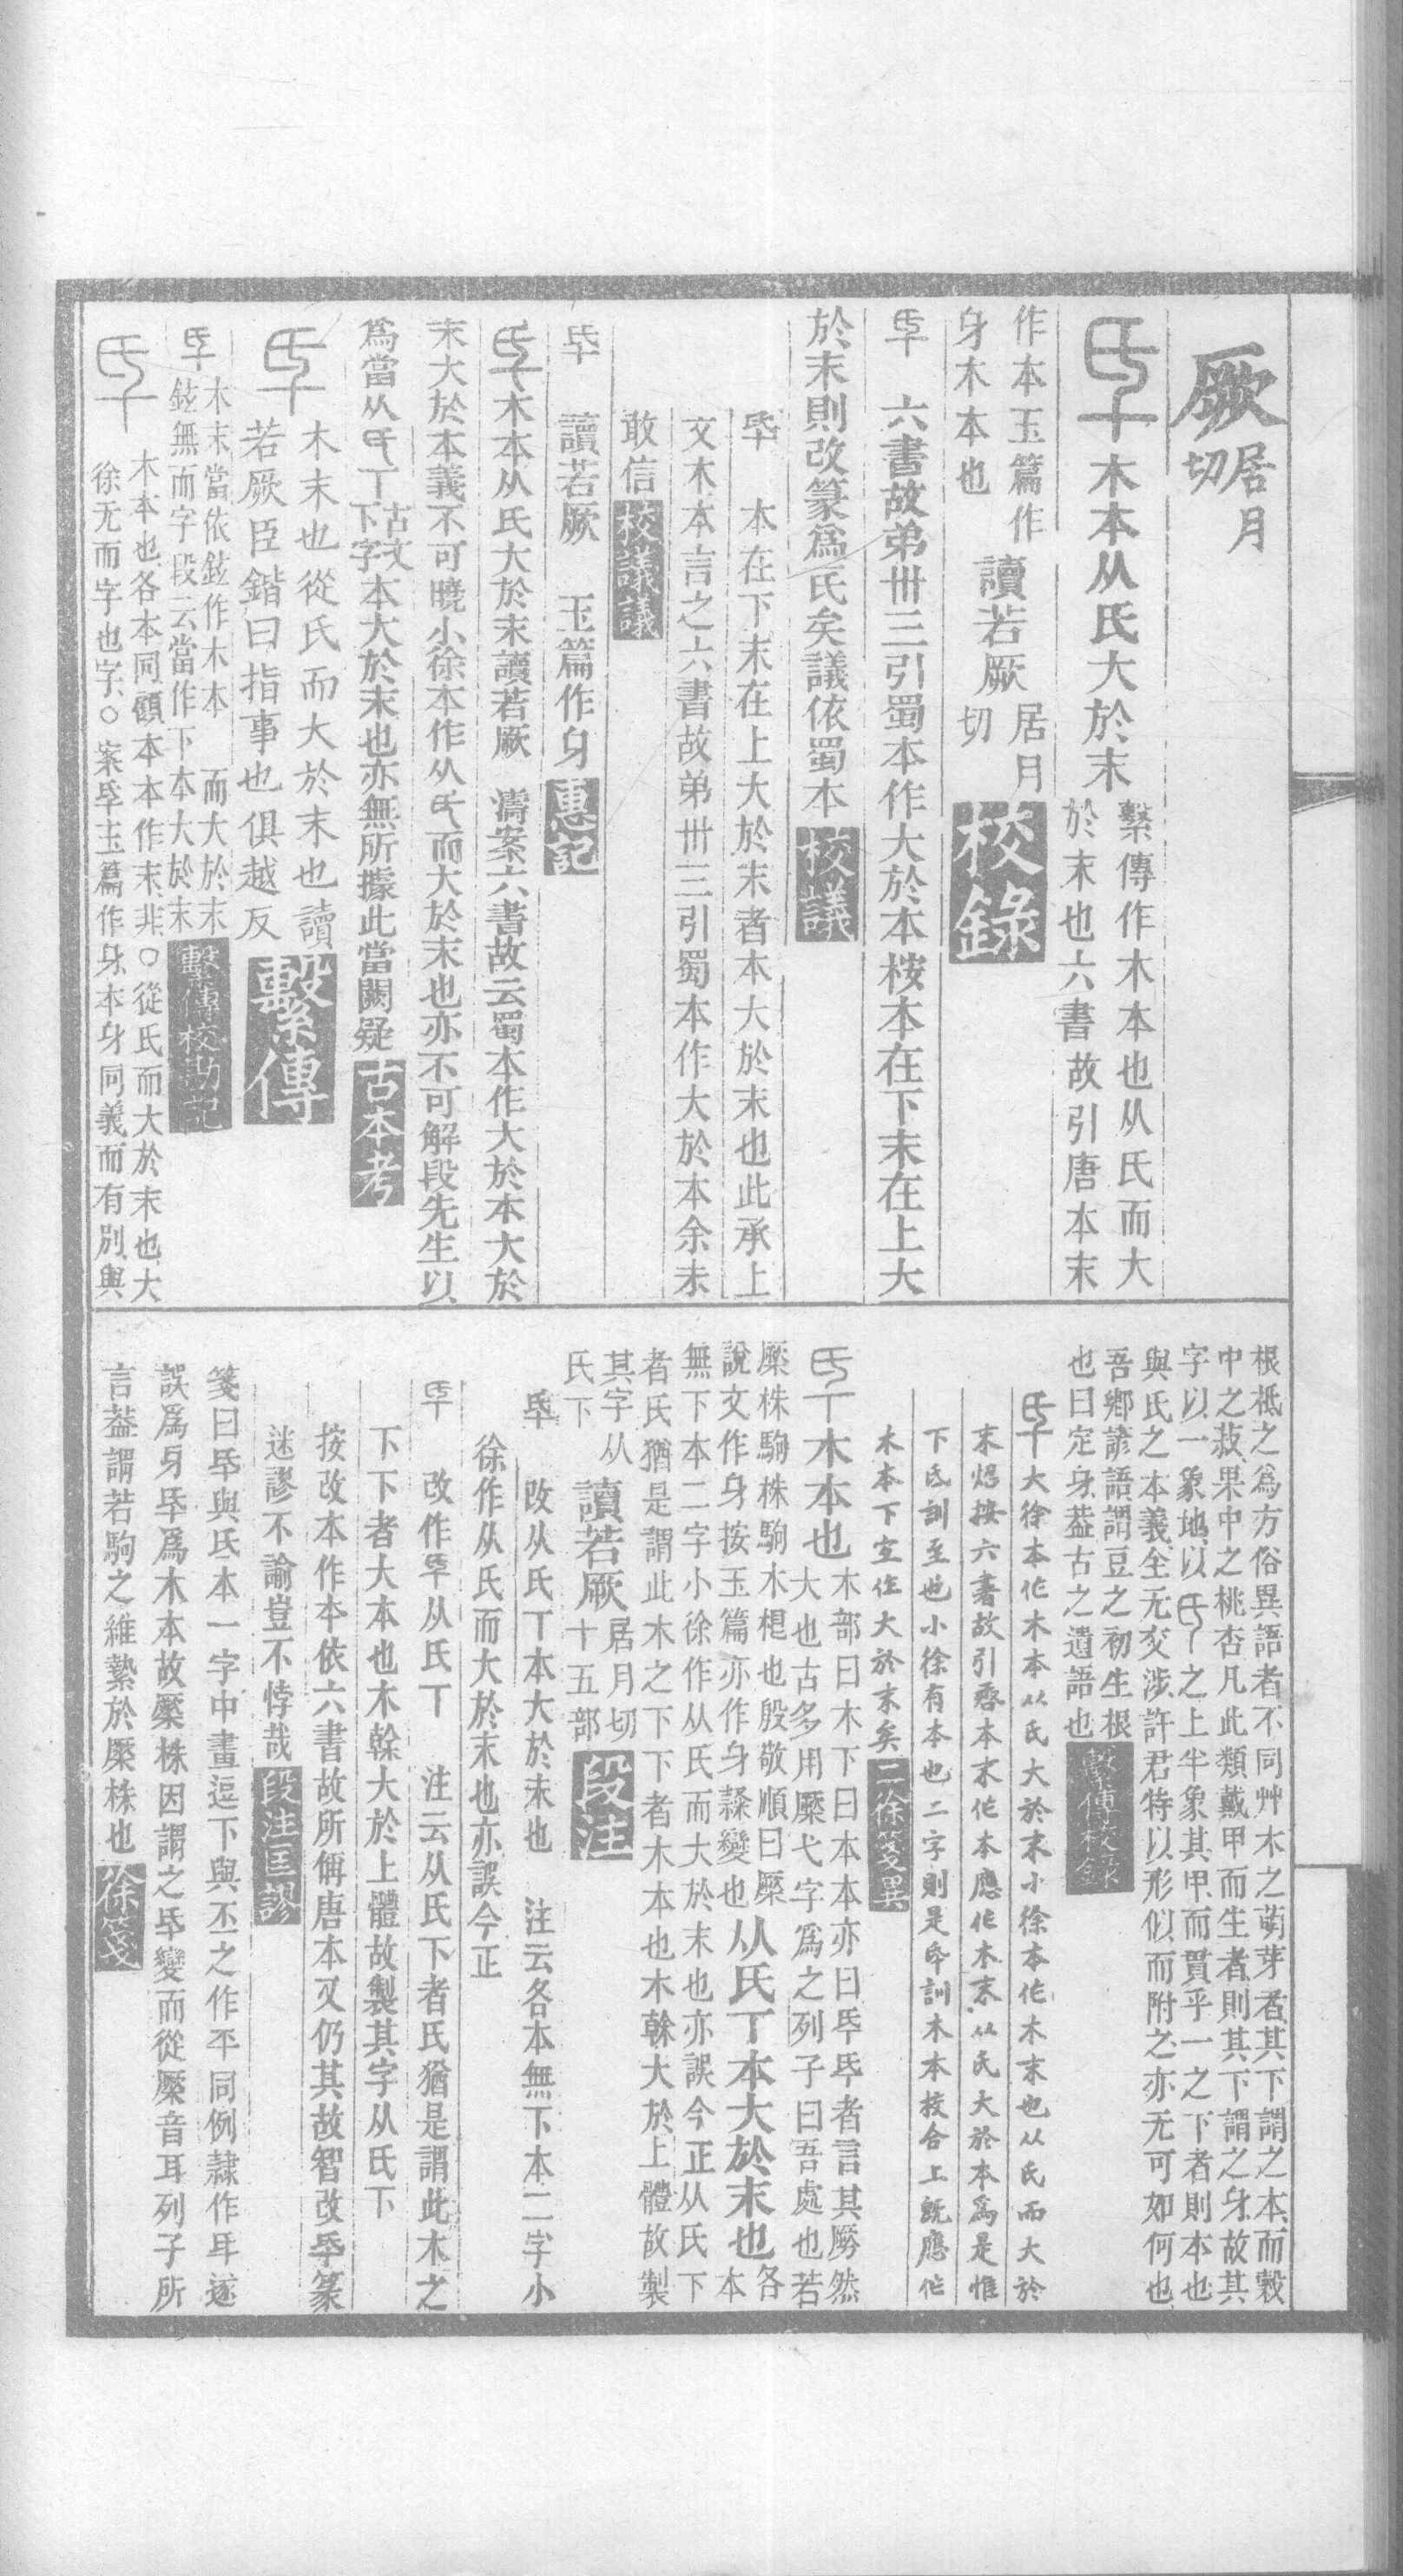 厥居月切
木本从氏大於末繫傳作木本也从氏而大
於末也六書故引唐本末
作本玉篇作
身木本也讀若厥居月切校錄
氒 六書故弟卅三引蜀本作大於本桉本在下末在上大
於末則改篆爲氏矣議依蜀本校議
氒 本在下末在上大於末者本大於末也此承上
文木本言之六書故弟卅三引蜀本作大於本余未
敢信校議議
氒 讀若厥 玉篇作身惠記
木本从氏大於末讀若厥 濤案六書故云蜀本作大於本大於
末大於本義不可曉小徐本作从氏而大於末也亦不可解段先生以
爲當从氏丅古文下字本大於末也亦無所據此當闕疑古本考
木末也從氏而大於末也讀
若厥臣鍇曰指事也俱越反繫傳
氒 木末當依鉉作木本 而大於末
鉉無而字段云當作下本大於末繫傳校勘記
木本也各本同顧本本作末非○從氏而大於末也大
徐无而字也字○案氒玉篇作身本身同義而有別與
根柢之爲方俗異語者不同艸木之萌芽者其下謂之本而穀
中之菽果中之桃杏凡此類戴甲而生者則其下謂之身故其
字以一象地以之上半象其甲而貫乎一之下者則本也
與氏之本義全无交涉許君特以形似而附之亦无可如何也
吾鄉諺語謂豆之初生根
也曰定身葢古之遺語也繫傳校錄
大徐本作木本从氏大於末小徐本作木末也从氏而大於
末煜按六書故引唐本末作本應作木末从氏大於本爲是惟
下氐訓至也小徐有本也二字則是氒訓木本按合上既應作
木本下宜作大於末矣二徐箋異
木本也木部曰木下曰本本亦曰氒氒者言其厥然
大也古多用橜弋字爲之列子曰吾處也若
橜株駒株駒木棍也殷敬順曰橜
說文作身按玉篇亦作身隸變也从氏丅本大於末也各本
無下本二字小徐作从氏而大於末也亦誤今正从氏下
者氏猶是謂此木之下下者木本也木榦大於上體故製
其字从
氏下讀若厥居月切十五部段注
氒 改从氏丅本大於末也 注云各本無下本二字小
徐作从氏而大於末也亦誤今正
氒 改作氒从氏丅 注云从氏下者氏猶是謂此木之
下下者大本也木榦大於上體故製其字从氏下
按改本作本依六書故所偁唐本又仍其故智改氒篆
迷謬不諭豈不悖哉段注匡謬
箋曰氒與氏本一字中畫逗下與不之作丕同例隸作氒遂
誤爲身氒爲木本故橜株因謂之氒變而從橜音耳列子所
言葢謂若駒之維縶於橜株也徐箋